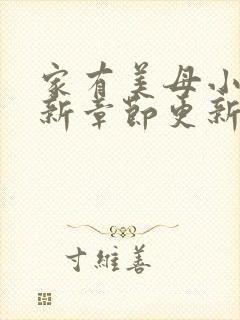 家有美母小
新章節更新
寸維善